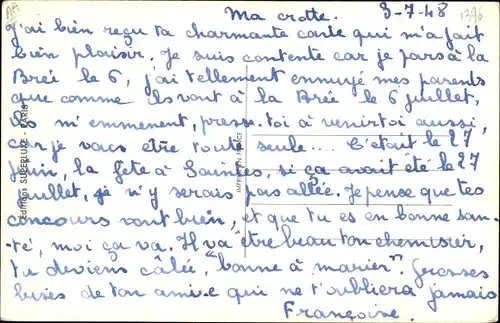 AA
Ma crotte. 3-7-48 1396
J'ai bien reçu ta charmante carte qui m'a fait
bien plaisir. Je suis contente car je pars à la
Brée le 6, j'ai tellement ennuyé mes parents
que comme ils vont à la Brée le 6 juillet,
ils m'emmenent, presse-toi à venir toi aussi,
car je vais être toute seule.... C'était le 27
Juin, la fête à Saintes, si ça avait été le 27
Juillet, je n'y serais pas allée. Je pense que tes
concours vont bien, et que tu es en bonne san-
té, moi ça va. Il va être beau ton chemisier,
tu deviens câlée, "bonne à marier". Grosses
bises de ton amie qui ne t'oubliera jamais
Françoise.
Editions SUPERLUXE - PARIS